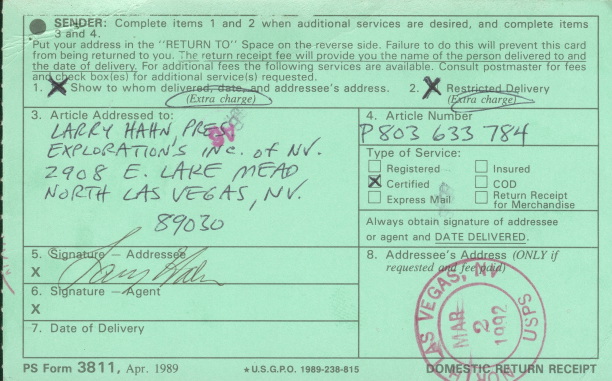 SENDER: Complete items 1 and 2 when additional services are desired, and complete items
3 and 4.
Put your address in the "RETURN TO" Space on the reverse side. Failure to do this will prevent this card
from being returned to you. The return receipt fee will provide you the name of the person delivered to and
the date of delivery. For additional fees the following services are available. Consult postmaster for fees
and check box(es) for additional service(s) requested.
1. X Show to whom delivered, date, and addressee's address. 2. X Restricted Delivery
(Extra charge) (Extra charge)
3. Article Addressed to:
LARRY HAHN, PRES
EXPLORATIONS INC. of NV.
2908 E. LAKE MEAD
NORTH LAS VEGAS, NV.
89030
4. Article Number
P 803 633 784
Type of Service:
Registered Insured
X Certified COD
Express Mail Return Receipt
for Merchandise
Always obtain signature of addressee
or agent and DATE DELIVERED.
5. Signature — Addressee
X Larry Hahn
6. Signature — Agent
X
7. Date of Delivery
8. Addressee's Address (ONLY if
requested and fee paid)
NORTH LAS VEGAS, NV
MAR
2
1992
USPS
PS Form 3811, Apr. 1989 ★ U.S.G.P.O. 1989-238-815 DOMESTIC RETURN RECEIPT